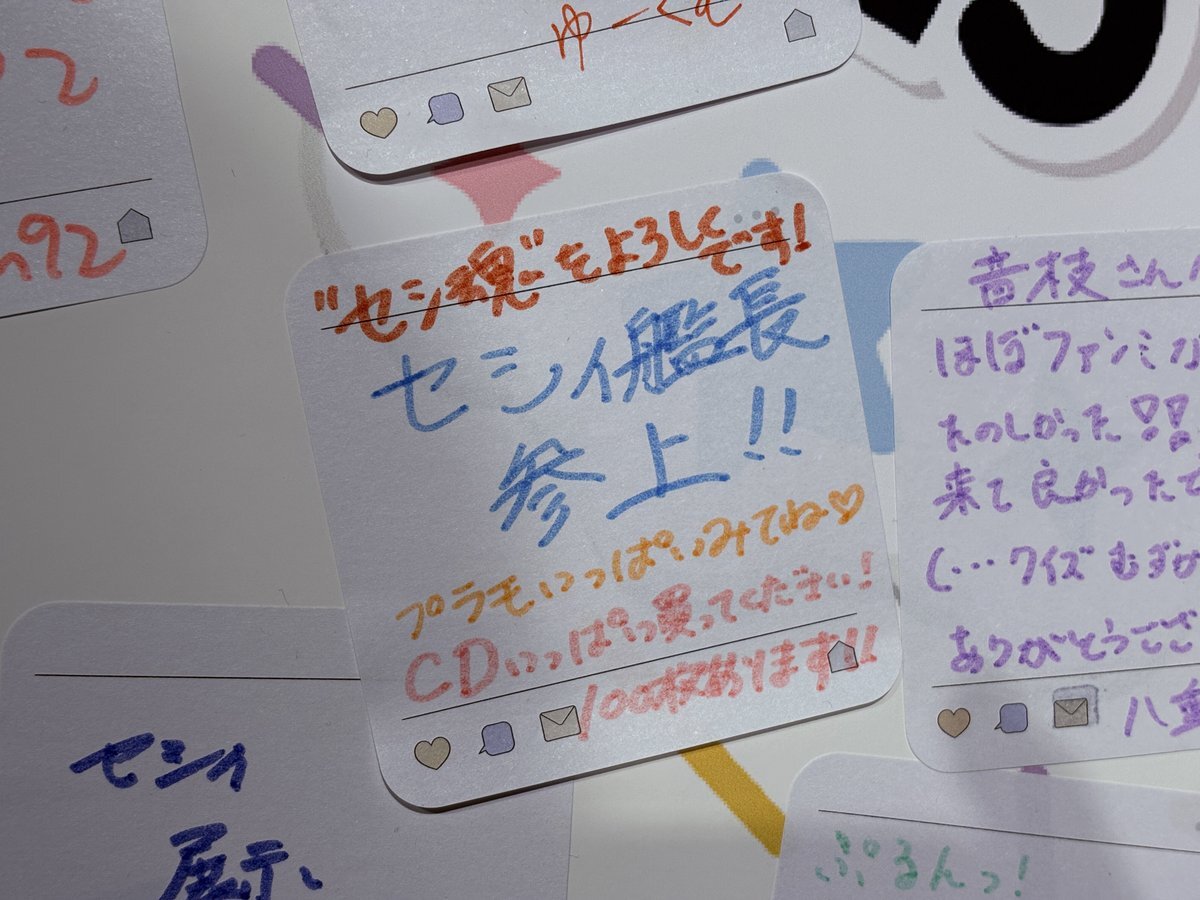 2
92
ゆーくむ
"セシ魂"をよろしく
です!
セシィ艦長
参上!!
プラモいっぱいみてね♡
CDいっぱい買ってください!
100枚あります!!
音枝さん
ほぼファンミ
たのしかった!!
来て良かった
(…クイズむずか
ありがとうござ
八重
セシィ
展示、
ぷるんっ!